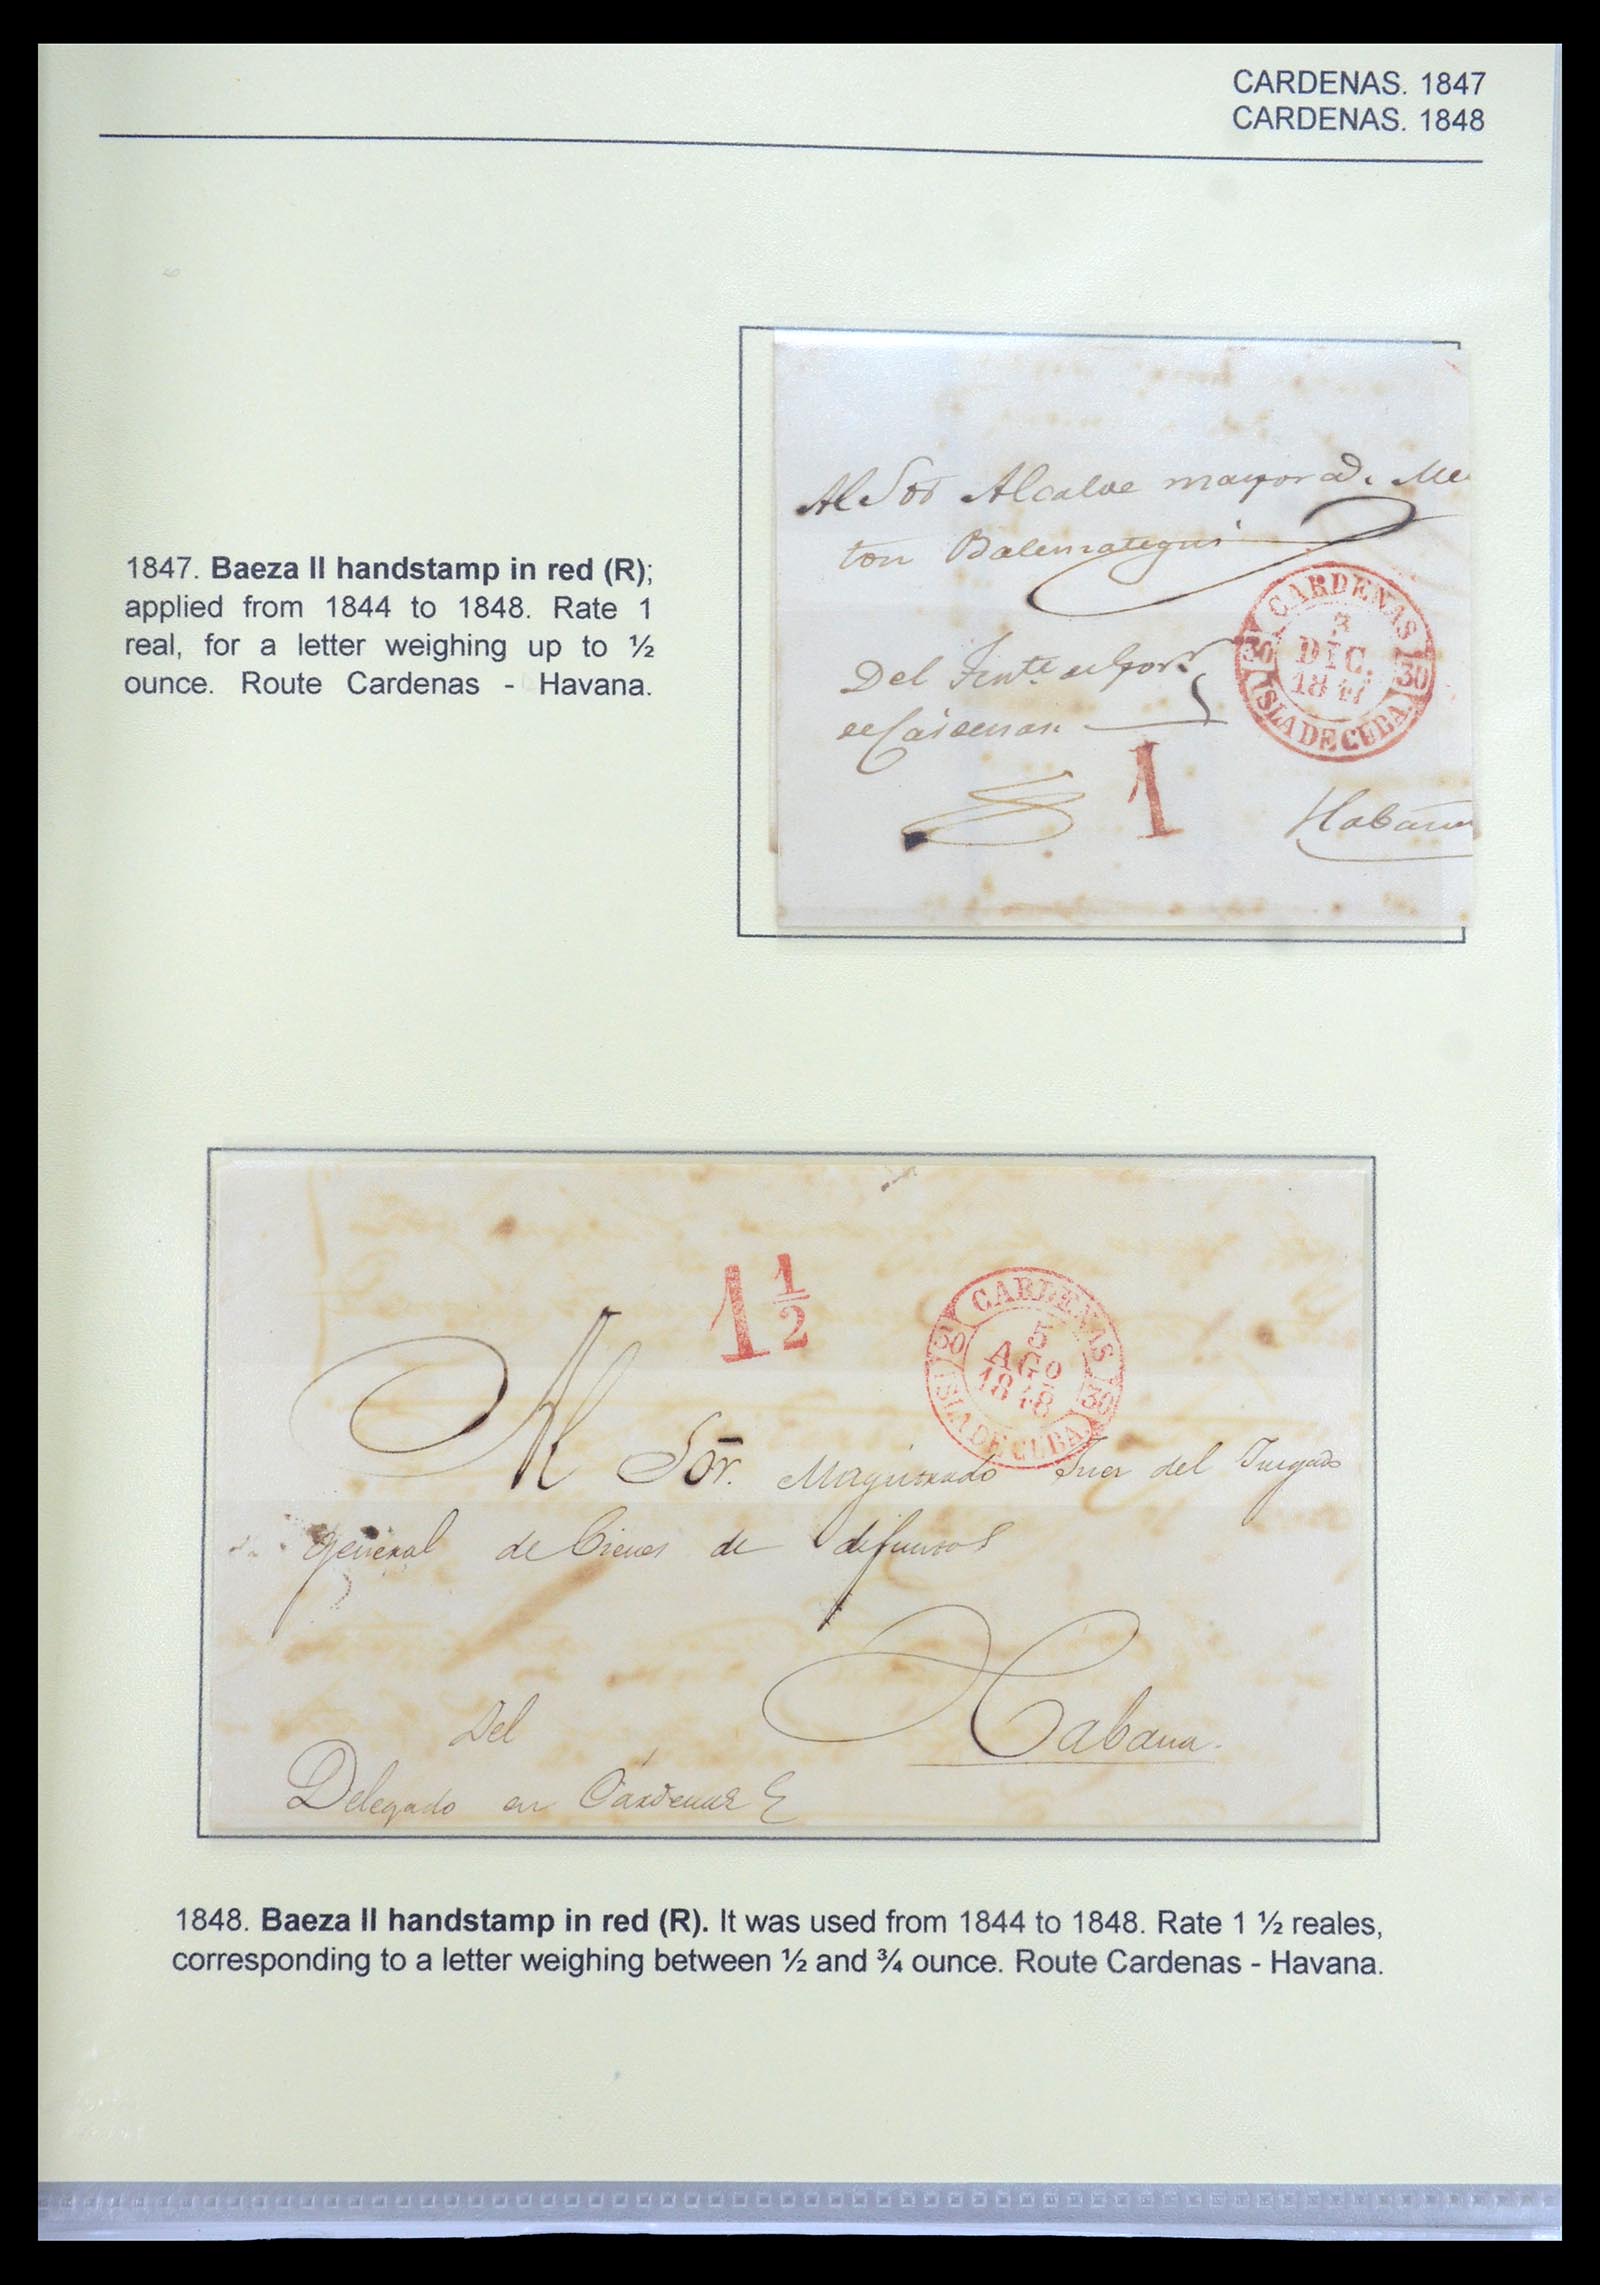 CARDENAS. 1847
CARDENAS. 1848
1847. Baeza II handstamp in red (R);
applied from 1844 to 1848. Rate 1
real, for a letter weighing up to ½
ounce. Route Cardenas - Havana.
Al Sor Alcalde mayor
Del
de Cárdenas
CARDENAS
3
DIC.
1847
30
30
ISLA DE CUBA.
1
Habana
1 1/2
CARDENAS
5
AGO
1848
30
30
ISLA DE CUBA.
Al Sor. Magistrado Juez del Juzgado
general de bienes de difuntos
Habana.
Del
Delegado en Cárdenas
1848. Baeza II handstamp in red (R). It was used from 1844 to 1848. Rate 1 ½ reales,
corresponding to a letter weighing between ½ and ¾ ounce. Route Cardenas - Havana.